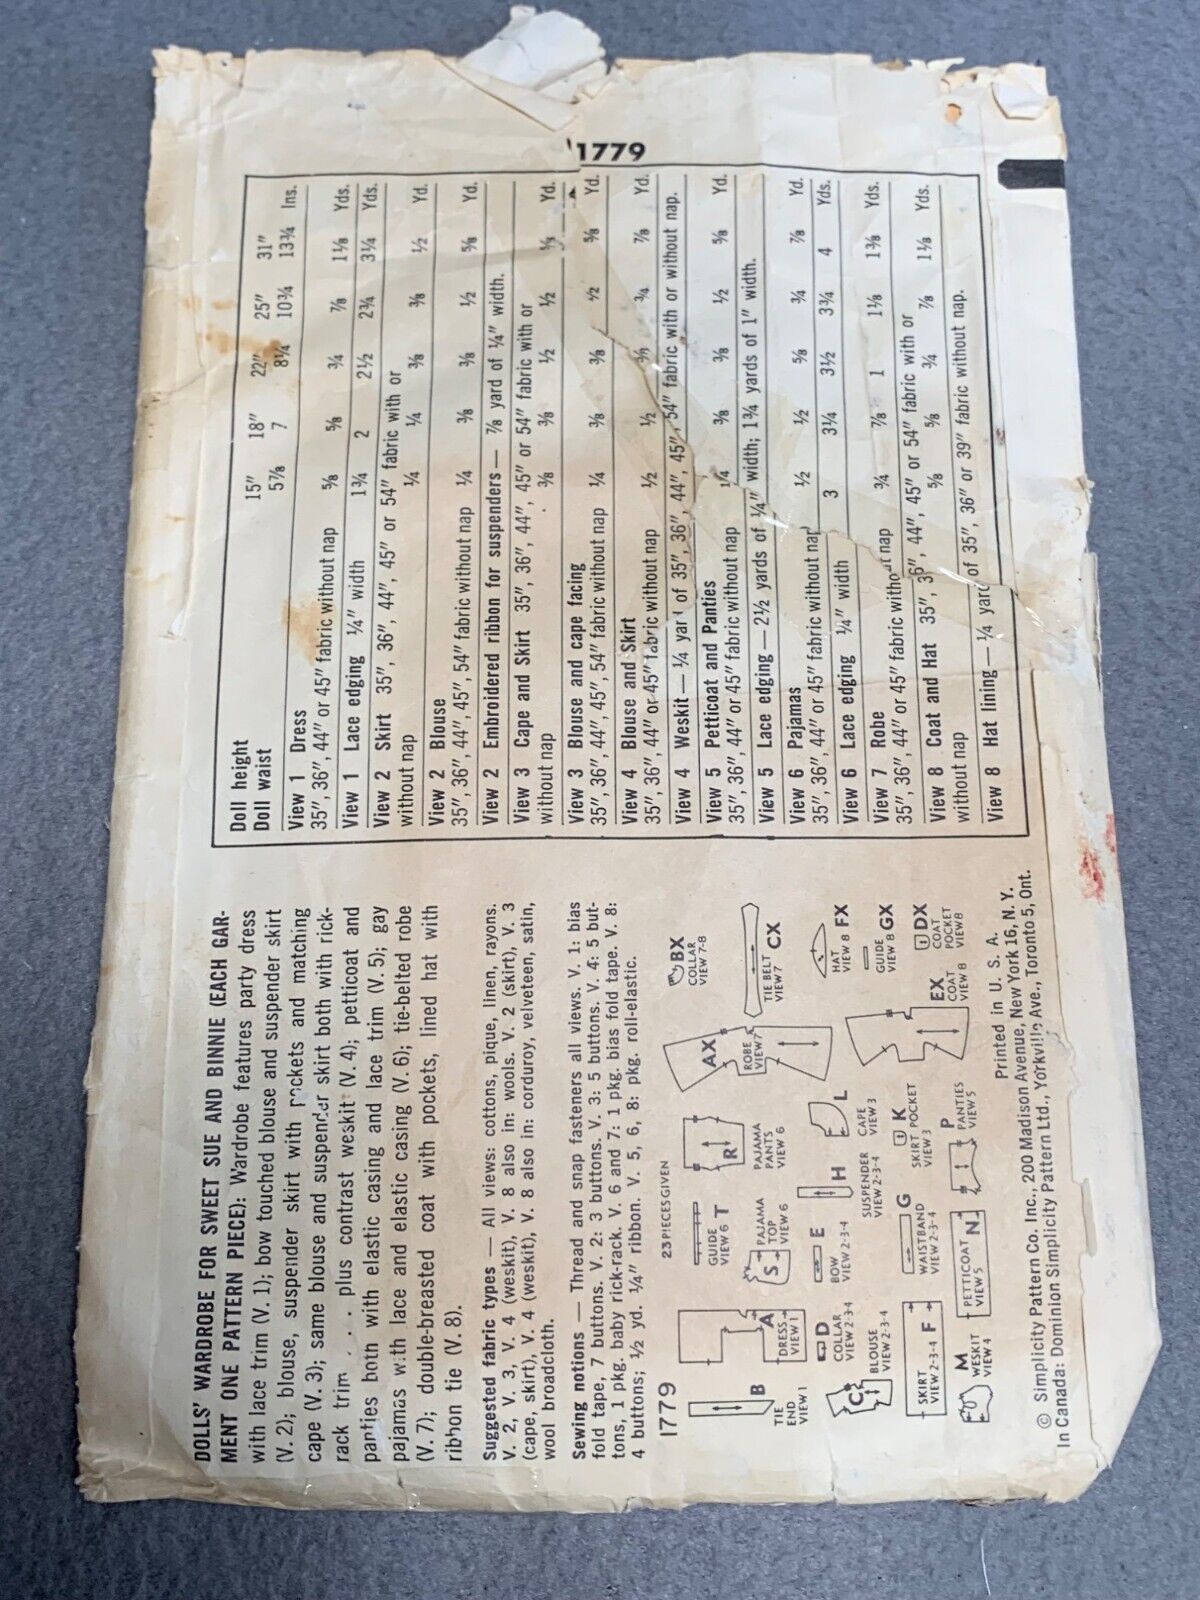 DOLLS' WARDROBE FOR SWEET SUE AND BINNIE (EACH GAR-
MENT ONE PATTERN PIECE): Wardrobe features party dress
with lace trim (V. 1); bow touched blouse and suspender skirt
(V. 2); blouse, suspender skirt with pockets and matching
cape (V. 3); same blouse and suspender skirt both with rick-
rack trim . . . plus contrast weskit (V. 4); petticoat and
panties both with elastic casing and lace trim (V. 5); gay
pajamas with lace and elastic casing (V. 6); tie-belted robe
(V. 7); double-breasted coat with pockets, lined hat with
ribbon tie (V. 8).
Suggested fabric types — All views: cottons, pique, linen, rayons.
V. 2, V. 3, V. 4 (weskit), V. 8 also in: wools. V. 2 (skirt), V. 3
(cape, skirt), V. 4 (weskit), V. 8 also in: corduroy, velveteen, satin,
wool broadcloth.
Sewing notions — Thread and snap fasteners all views. V. 1: bias
fold tape, 7 buttons. V. 2: 3 buttons. V. 3: 5 buttons. V. 4: 5 but-
tons, 1 pkg. baby rick-rack. V. 6 and 7: 1 pkg. bias fold tape. V. 8:
4 buttons; ½ yd. ¼" ribbon. V. 5, 6, 8: pkg. roll-elastic.
1779
23 PIECES GIVEN
B
TIE
END
VIEW 1
A
DRESS
VIEW 1
GUIDE
VIEW 6 T
R
PAJAMA
PANTS
VIEW 6
AX
ROBE
VIEW 7
BX
COLLAR
VIEW 7-8
TIE BELT CX
VIEW 7
D
COLLAR
VIEW 2-3-4
S
PAJAMA
TOP
VIEW 6
C
BLOUSE
VIEW 2-3-4
E
BOW
VIEW 2-3-4
H
SUSPENDER
VIEW 2-3-4
L
CAPE
VIEW 3
HAT
VIEW 8 FX
GUIDE
VIEW 8 GX
SKIRT
VIEW 2-3-4 F
G
WAISTBAND
VIEW 2-3-4
K
SKIRT POCKET
VIEW 3
EX
COAT
VIEW 8
DX
COAT
POCKET
VIEW 8
M
WESKIT
VIEW 4
PETTICOAT
VIEW 5 N
P
PANTIES
VIEW 5
Printed in U. S. A.
© Simplicity Pattern Co. Inc., 200 Madison Avenue, New York 16, N. Y.
In Canada: Dominion Simplicity Pattern Ltd., Yorkville Ave., Toronto 5, Ont.
1779
Doll height 15" 18" 22" 25" 31"
Doll waist 5⅞ 7 8¼ 10¾ 13¾ Ins.
View 1 Dress
35", 36", 44" or 45" fabric without nap ⅝ ⅝ ¾ ⅞ 1⅛ Yds.
View 1 Lace edging ¼" width 1¾ 2 2½ 2¾ 3¼ Yds.
View 2 Skirt 35", 36", 44", 45" or 54" fabric with or
without nap ¼ ¼ ⅜ ⅜ ½ Yd.
View 2 Blouse
35", 36", 44", 45", 54" fabric without nap ¼ ⅜ ⅜ ½ ⅝ Yd.
View 2 Embroidered ribbon for suspenders — ⅞ yard of ¼" width.
View 3 Cape and Skirt 35", 36", 44", 45" or 54" fabric with or
without nap ⅜ ⅜ ½ ½ ⅝ Yd.
View 3 Blouse and cape facing
35", 36", 44", 45", 54" fabric without nap ¼ ⅜ ⅜ ½ ⅝ Yd.
View 4 Blouse and Skirt
35", 36", 44" or 45" fabric without nap ½ ½ ¾ ⅞ Yd.
View 4 Weskit — ¼ yard of 35", 36", 44", 45", 54" fabric with or without nap.
View 5 Petticoat and Panties
35", 36", 44" or 45" fabric without nap ¼ ⅜ ⅜ ½ ⅝ Yd.
View 5 Lace edging — 2½ yards of ¼" width; 1¾ yards of 1" width.
View 6 Pajamas
35", 36", 44" or 45" fabric without nap ½ ½ ⅝ ¾ ⅞ Yd.
View 6 Lace edging ¼" width 3 3¼ 3½ 3¾ 4 Yds.
View 7 Robe
35", 36", 44" or 45" fabric without nap ¾ ⅞ 1 1⅛ 1⅜ Yds.
View 8 Coat and Hat 35", 36", 44", 45" or 54" fabric with or
without nap ⅝ ⅝ ¾ ⅞ 1⅛ Yds.
View 8 Hat lining — ¼ yard of 35", 36" or 39" fabric without nap.